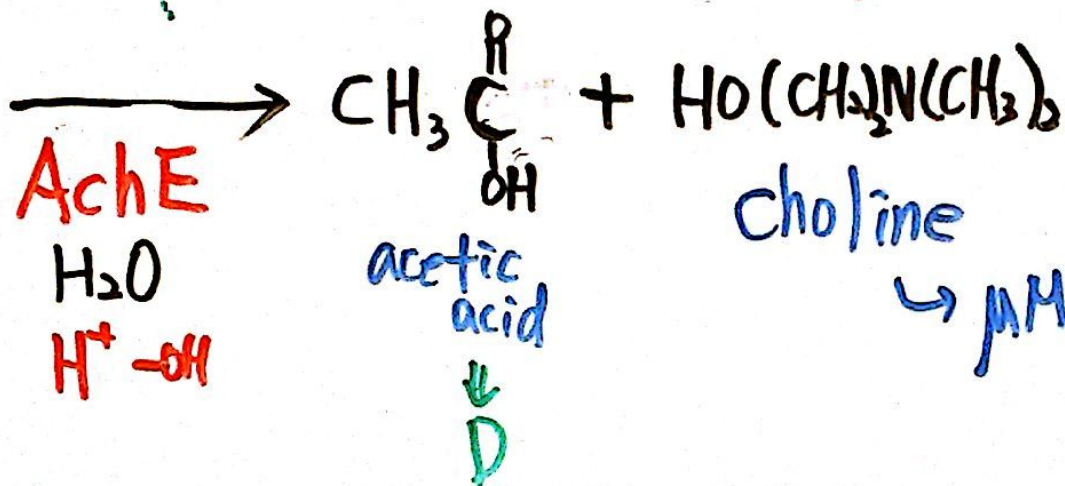 R
CH₃ C + HO(CH₂)₂N(CH₃)₂
OH
AchE
H₂O
H⁺ -OH
acetic
acid
D
choline
↳ μM